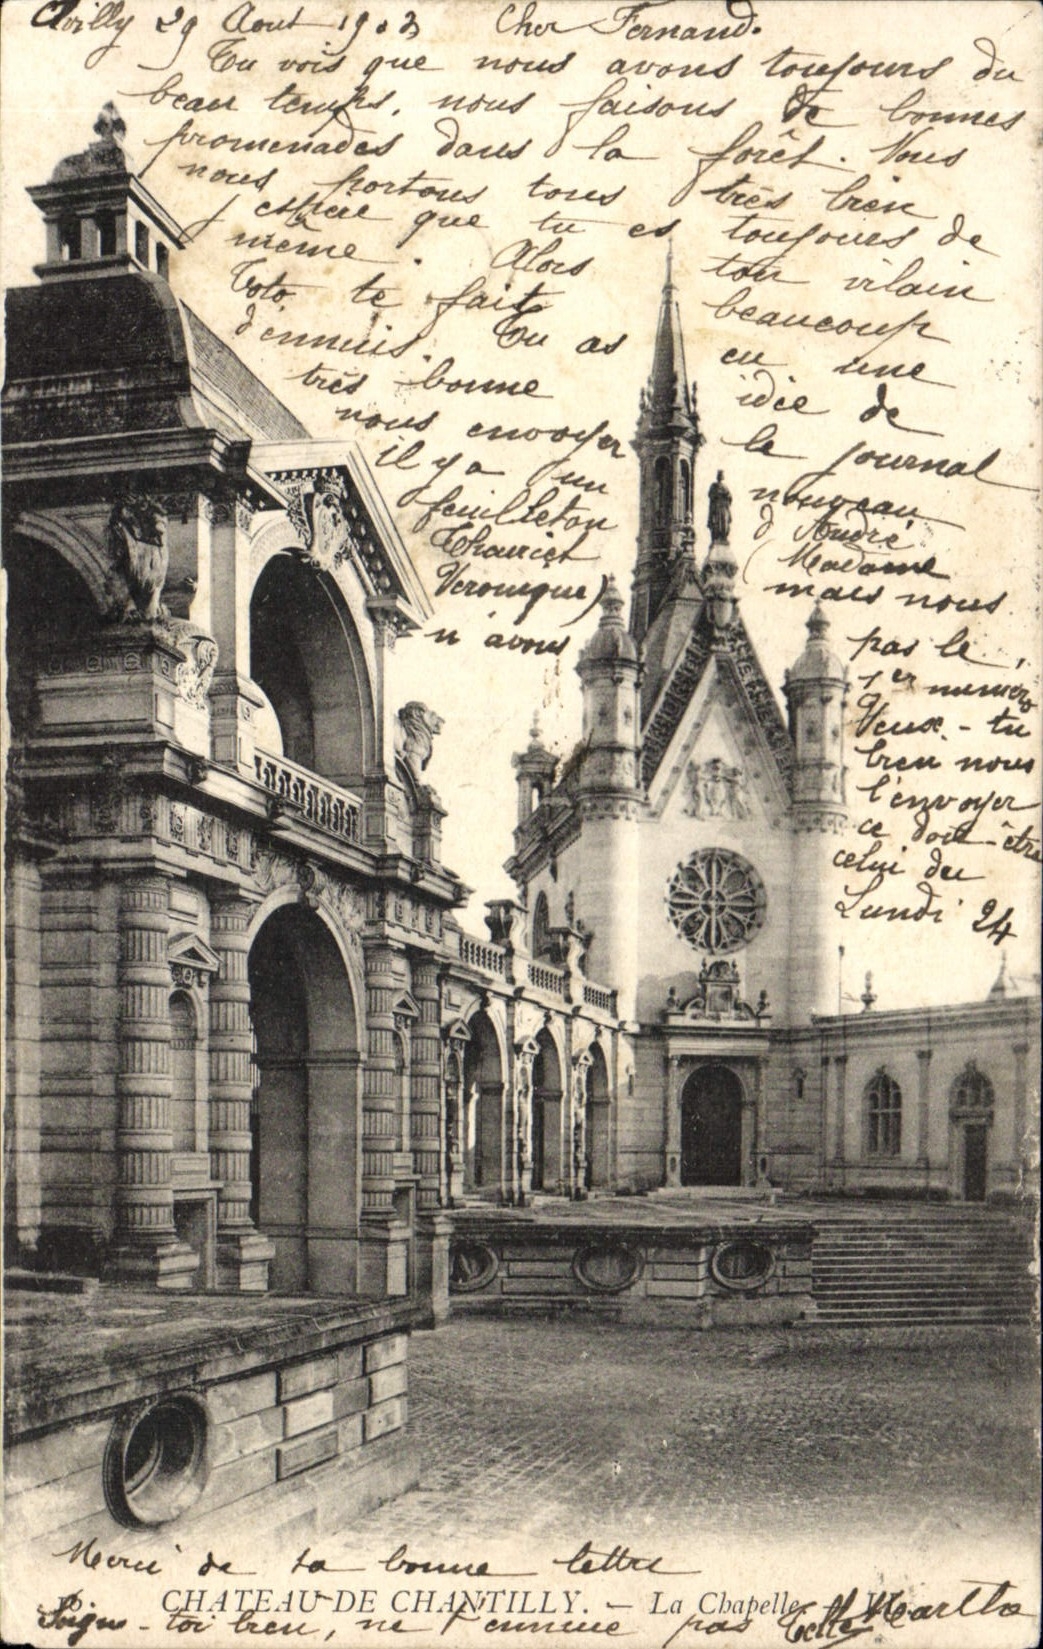 Avilly 29 Aout 1903 Cher Fernand.
Tu vois que nous avons toujours du
beau temps, nous faisons de bonnes
promenades dans la forêt. Nous
nous portons tous très bien
j'espère que tu es toujours de
même. Alors ton vilain
Toto te fait beaucoup
d'ennuis. Tu as eu une
très bonne idée de
nous envoyer le journal
il y a un nouveau
feuilleton d'André
Theuriet (Madame
Veronique) mais nous
n'avons pas le
1er numéro
Veux-tu
bien nous
l'envoyer
ce doit-être
celui du
Lundi 24
Merci de ta bonne lettre
CHATEAU DE CHANTILLY. — La Chapelle
Soigne-toi bien, ne t'ennuie pas Martha